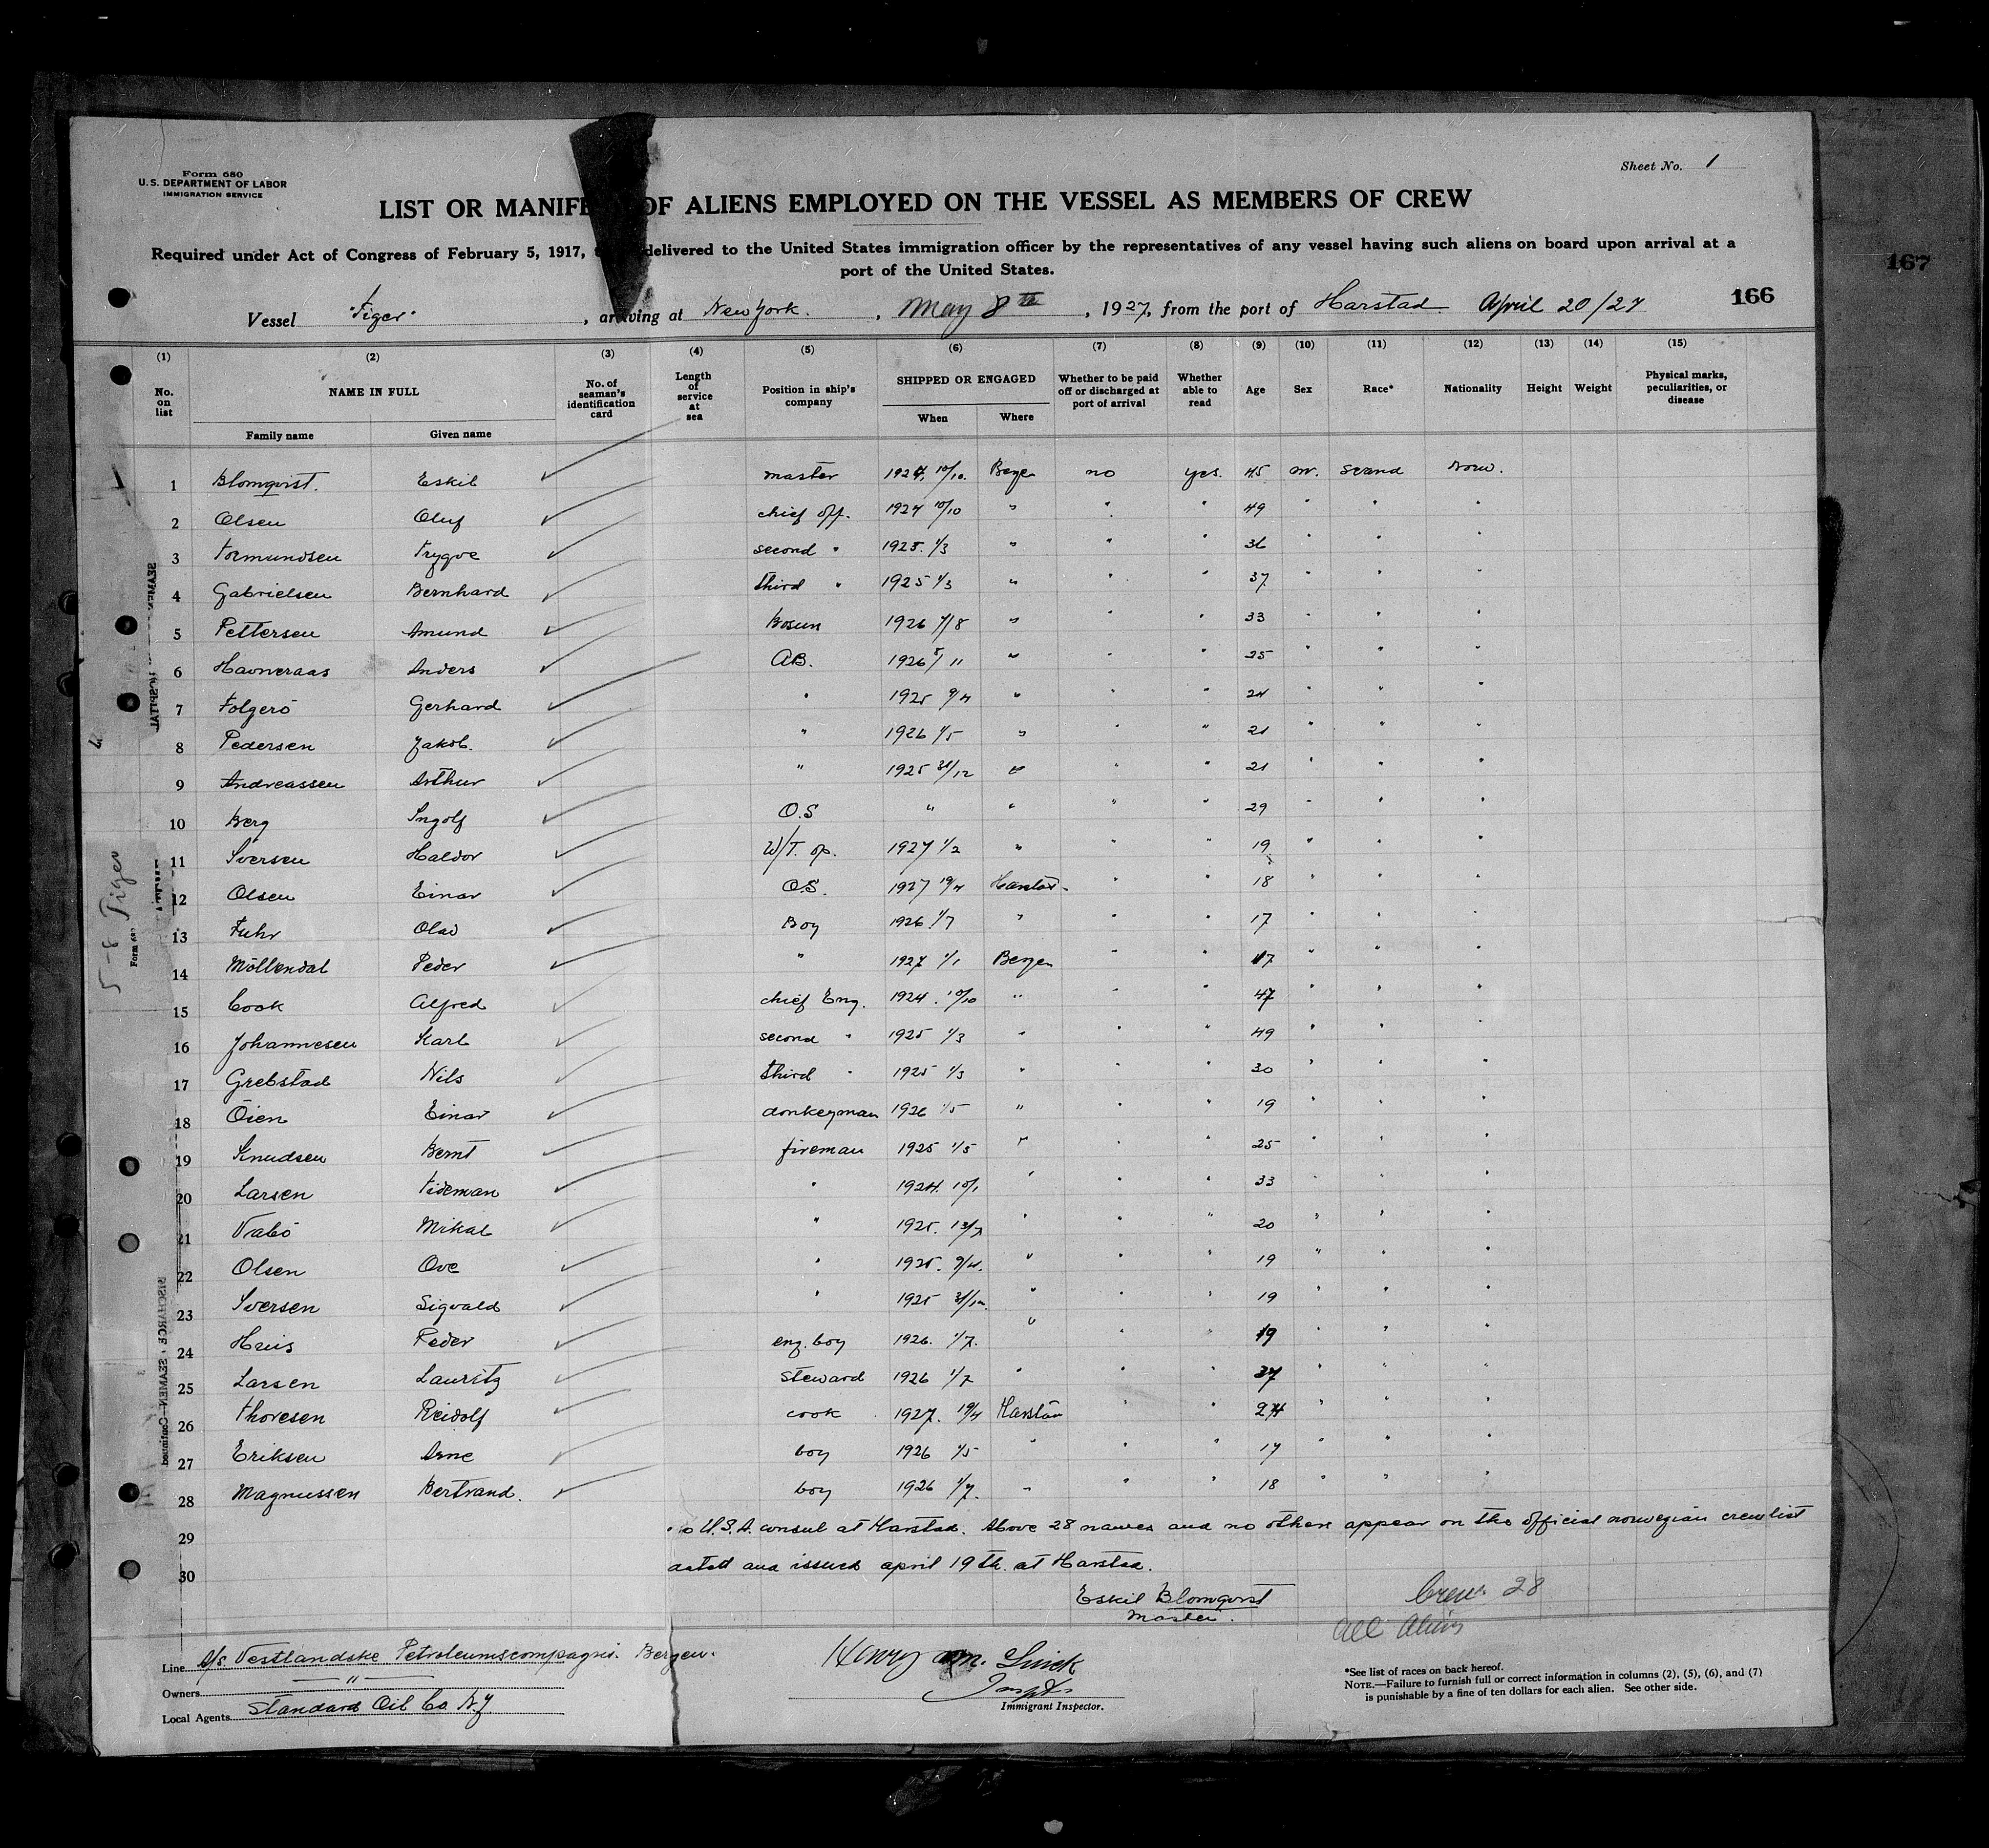 Form 680
U.S. DEPARTMENT OF LABOR
IMMIGRATION SERVICE
Sheet No. 1
LIST OR MANIFE OF ALIENS EMPLOYED ON THE VESSEL AS MEMBERS OF CREW
Required under Act of Congress of February 5, 1917, delivered to the United States immigration officer by the representatives of any vessel having such aliens on board upon arrival at a
port of the United States.
167
166
Vessel "Tiger" , arriving at New York. , May 8th , 1927, from the port of Harstad April 20/27
(1) (2) (3) (4) (5) (6) (7) (8) (9) (10) (11) (12) (13) (14) (15)
No. on list NAME IN FULL No. of seaman's identification card Length of service at sea Position in ship's company SHIPPED OR ENGAGED Whether to be paid off or discharged at port of arrival Whether able to read Age Sex Race* Nationality Height Weight Physical marks, peculiarities, or disease
Family name Given name When Where
1 Blomqvist. Eskil master 1924, 10/10. Bergen no yes. 45 m. scand Norw.
2 Olsen Oluf chief off. 1924 10/10 " " " 49 " " "
3 Tormundsen Trygve second " 1925. 1/3 " " " 36 " " "
4 Gabrielsen Bernhard third " 1925 1/3 " " " 37 " " "
5 Pettersen Amund Bosun 1926 " " " 33 " " "
6 Havneraas Anders AB. 1926 5/11 " " " 25 " " "
7 Folgerö Gerhard " 1925 9/4 " " " 24 " " "
8 Pedersen Jakob. " 1926 1/5 " " " 21 " " "
9 Andreassen Arthur " 1925 31/12 " " " 21 " " "
10 Berg Ingolf O.S " " " " 29 " " "
11 Iversen Haldor W/T. op. 1927 1/2 " " " 19 " " "
12 Olsen Einar O.S. 1927 19/4 Harstad " " 18 " " "
13 Fuhr Olav Boy 1926 1/7 " " " 17 " " "
14 Möllendal Peder " 1927 1/1 Bergen " " 17 " " "
15 Cook Alfred chief Eng. 1924. 10/10 " " " 47 " " "
16 Johannesen Karl second " 1925 1/3 " " " 49 " " "
17 Grebstad Nils third " 1925 1/3 " " " 30 " " "
18 Öien Einar donkeyman 1926 1/5 " " " 19 " " "
19 Knudsen Bernt fireman 1925 1/5 " " " 25 " " "
20 Larsen Tideman " 1924. 10/1 " " " 33 " " "
21 Vabö Mikal " 1925. 13/7 " " " 20 " " "
22 Olsen Ove " 1925. 9/4. " " " 19 " " "
23 Iversen Sigvald " 1925 31/12. " " " 19 " " "
24 Peder eng. boy 1926. 1/7. " " " 19 " " "
25 Larsen Lauritz steward 1926 1/7 " " " 37 " " "
26 Thoresen Reidolf cook 1927. 19/4 Harstad " " 24 " " "
27 Eriksen Arne boy 1926 1/5 " " " 17 " " "
28 Magnussen Bertrand. boy 1926 1/7. " " " 18 " " "
29 No U.S.A. consul at Harstad. Above 28 names and no others appear on the official norwegian crewlist
30 dated and issued april 19th. at Harstad.
Eskil Blomqvist
Master.
Crew 28
all Aliens
Line A/s. Vestlandske Petroleumscompagni. Bergen.
Owners "
Local Agents Standard Oil Co. N.Y.
Henry
Immigrant Inspector.
*See list of races on back hereof.
NOTE.—Failure to furnish full or correct information in columns (2), (5), (6), and (7)
is punishable by a fine of ten dollars for each alien. See other side.
5-8 Tiger